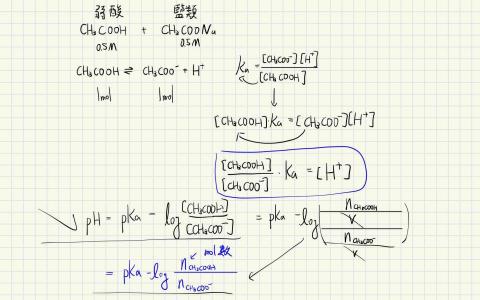 弱酸 鹽類
CH₃COOH + CH₃COONa
0.5M 0.5M
CH₃COOH ⇌ CH₃COO⁻ + H⁺
1mol 1mol
Ka = [CH₃COO⁻][H⁺] / [CH₃COOH]
[CH₃COOH]·Ka = [CH₃COO⁻][H⁺]
[CH₃COOH] / [CH₃COO⁻] · Ka = [H⁺]
pH = pKa - log [CH₃COOH] / [CH₃COO⁻] = pKa - log ( nCH₃COOH / V / nCH₃COO⁻ / V )
mol數
= pKa - log nCH₃COOH / nCH₃COO⁻